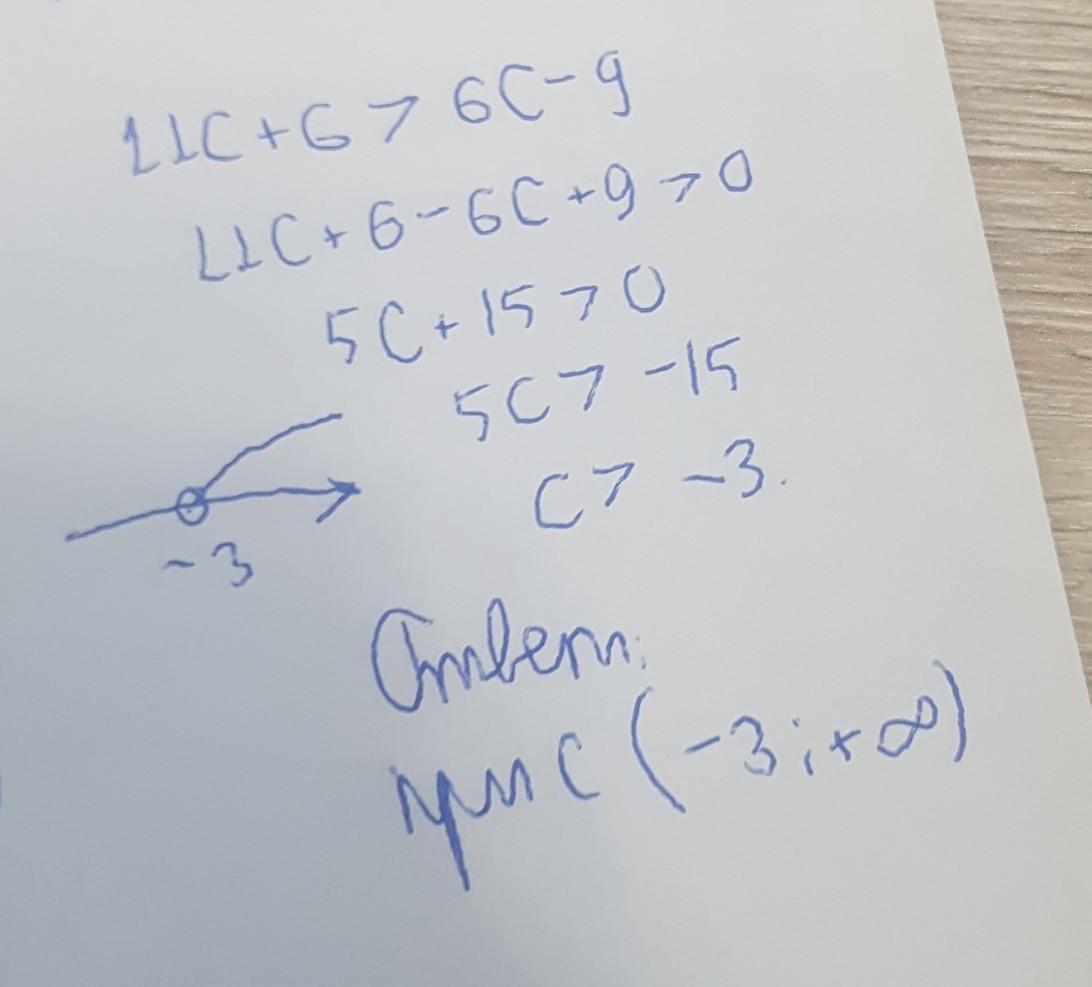 11C+6 > 6C-9
11C+6-6C+9>0
5C+15>0
5C> -15
C> -3.
-3
Ответ:
при C (-3;+∞)